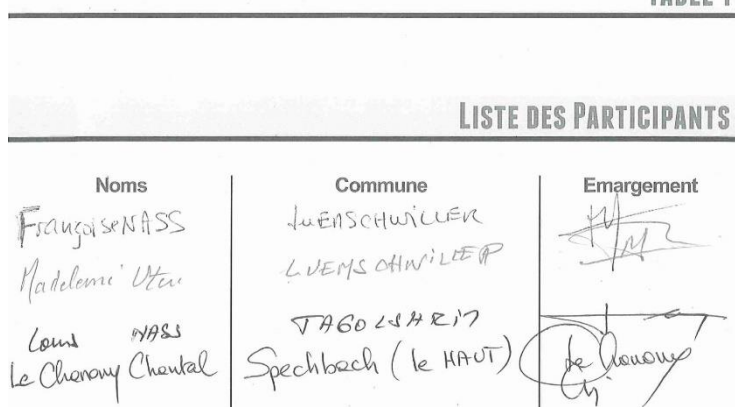 LISTE DES PARTICIPANTS
Noms Commune Emargement
Françoise NASS LUEMSCHWILLER
Madeleine LUEMSCHWILLER
Louis NASS TAGOLSHEIM
Le Chanony Chantal Spechbach (le HAUT) Le Chanony Ch.